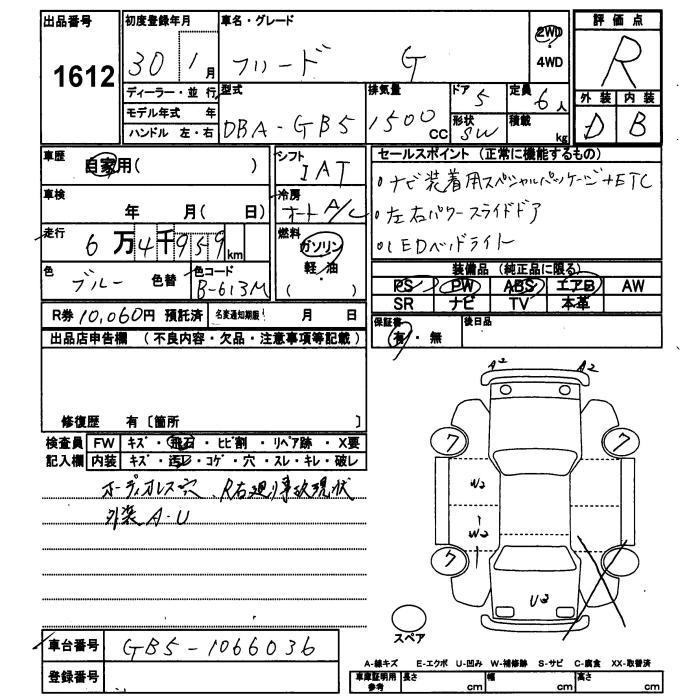 出品番号 初度登録年月 車名・グレード 評価点
1612 30 1月 フリード G 2WD ・ 4WD R
ディーラー・並行 型式 排気量 ドア 定員 外装 内装
モデル年式 年 DBA-GB5 1500cc 5 6人 D B
ハンドル 左・右 形状 SW 積載 kg
車歴 自家用( ) シフト IAT セールスポイント (正常に機能するもの)
車検 年 月( 日) 冷房 オートA/C
・ナビ装着用スペシャルパッケージ+ETC
・左右パワースライドドア
・LEDヘッドライト
走行 6万4千959km 燃料 ガソリン・軽・油 ( )
色 ブルー 色替 色コード B-613M
装備品 (純正品に限る)
PS PW ABS エアB AW
SR ナビ TV 本革
R券 10,060円 預託済 名変通知期限 月 日
保証書 有・無 後日品
出品店申告欄 (不良内容・欠品・注意事項等記載)
修復歴 有〔箇所 〕
検査員記入欄 FW キズ・飛石・ヒビ割・リペア跡・X要
内装 キズ・汚レ・コゲ・穴・スレ・キレ・破レ
オーディオレス穴 R右廻り事故現状
外装A・U
A2 A2
7 7
W2
W2
7 7
U2
スペア
車台番号 GB5-1066036
登録番号
A-線キズ E-エクボ U-凹み W-補修跡 S-サビ C-腐食 XX-取替済
車庫証明用参考 長さ cm 幅 cm 高さ cm